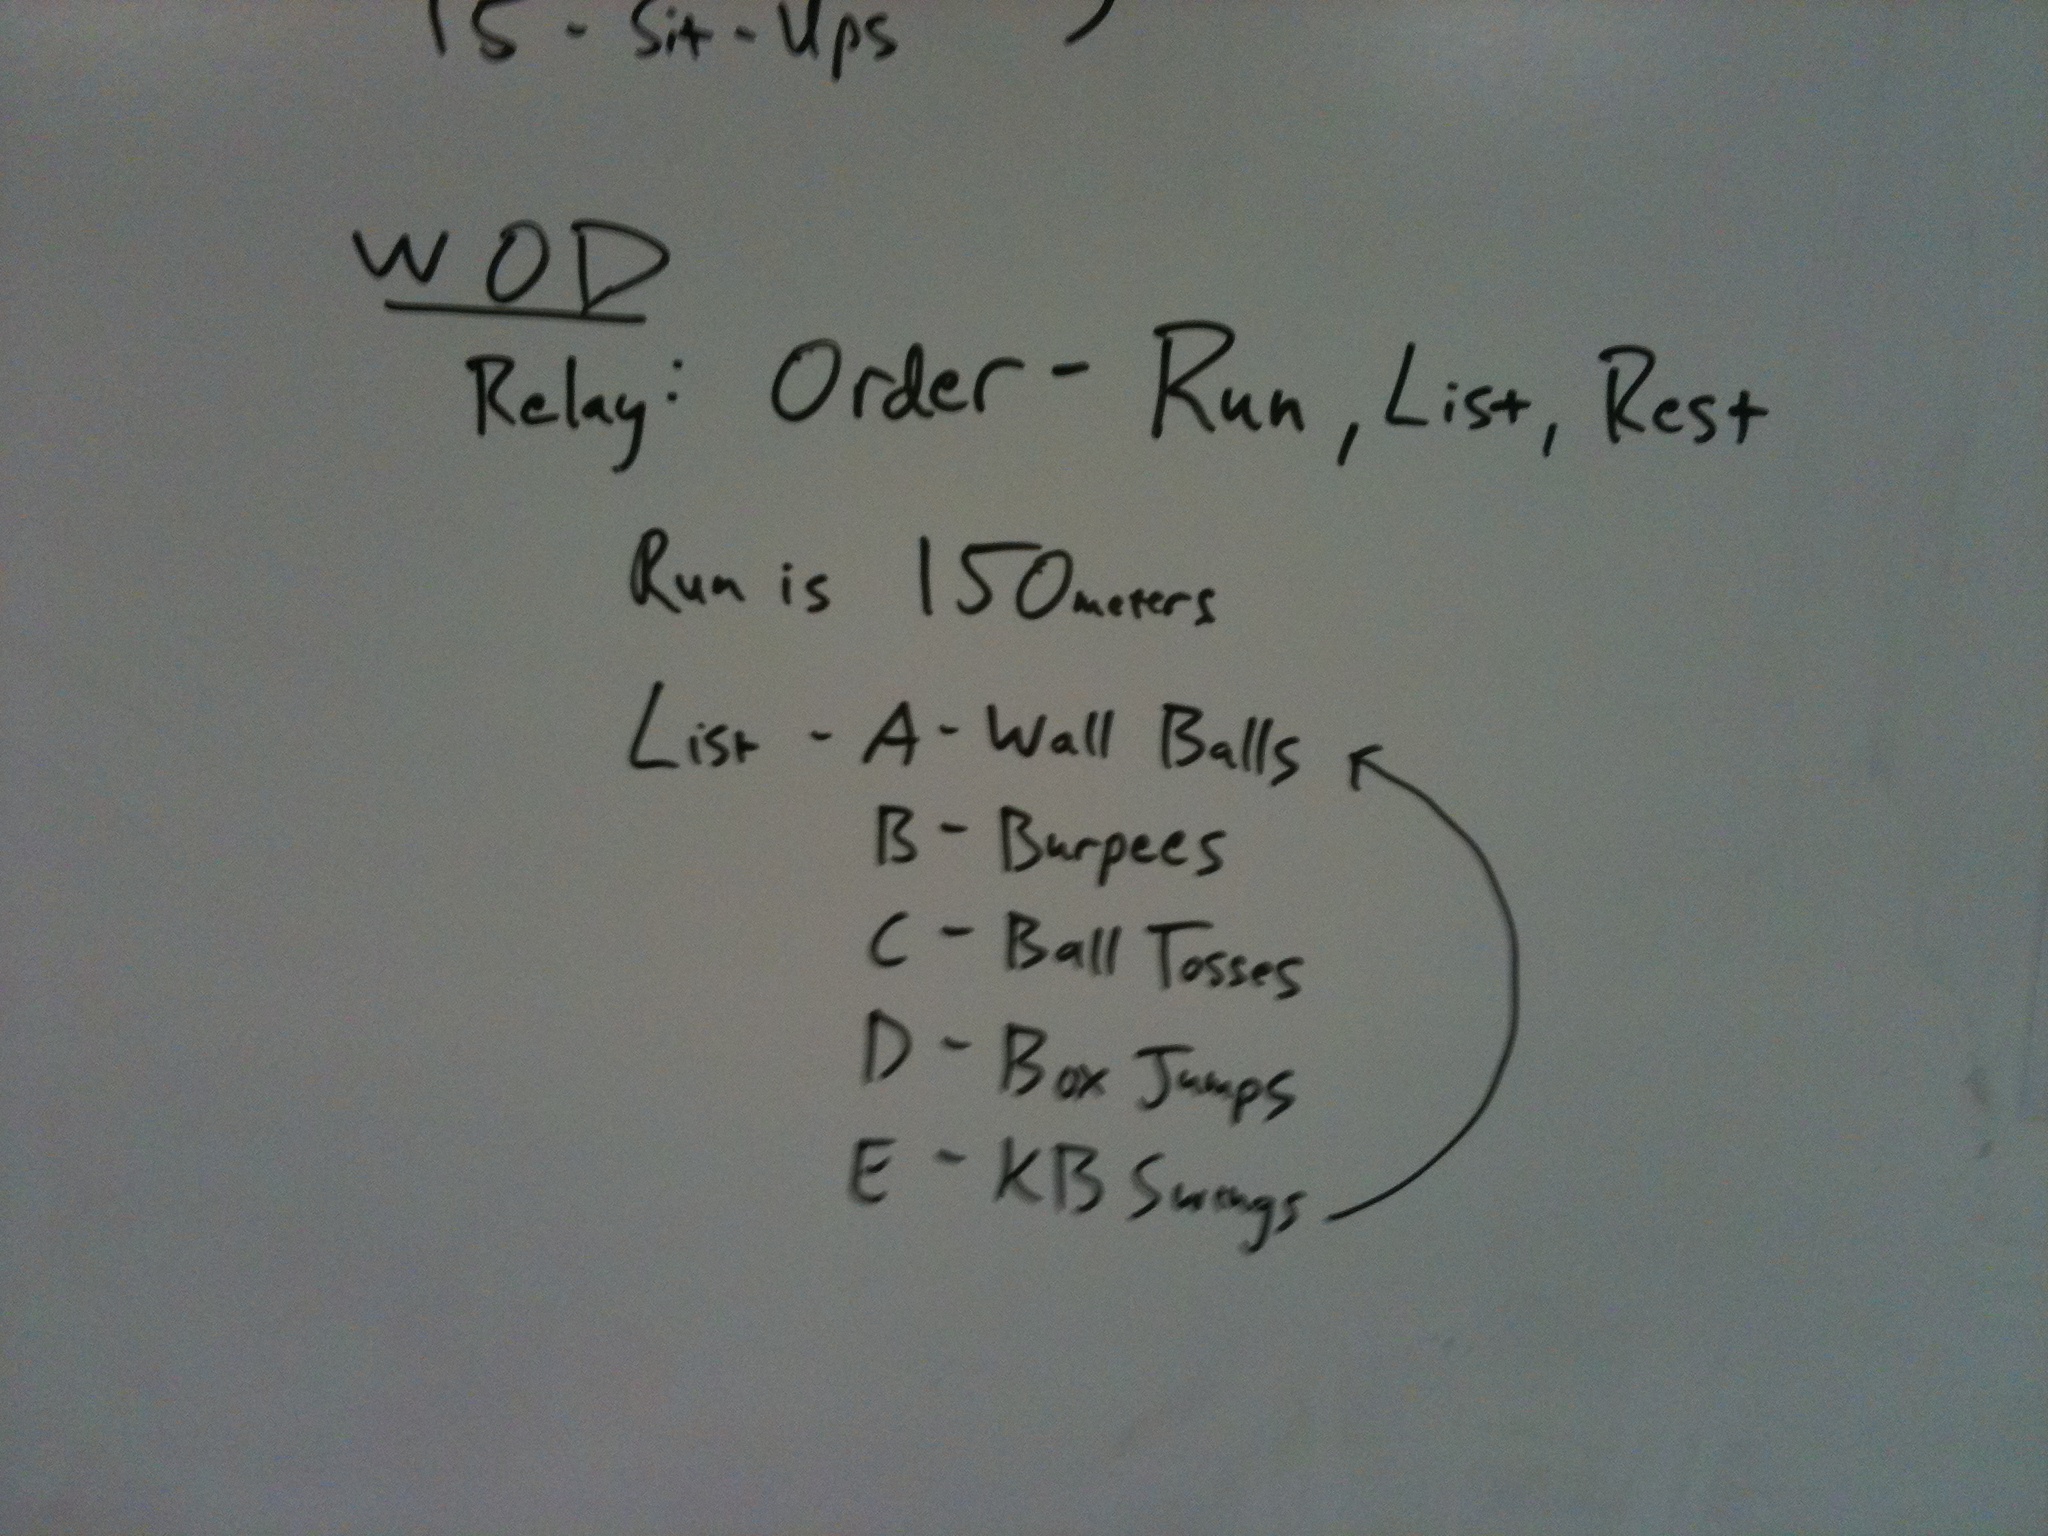 15 - Sit-Ups
WOD
Relay: Order - Run, List, Rest
Run is 150 meters
List - A - Wall Balls
B - Burpees
C - Ball Tosses
D - Box Jumps
E - KB Swings